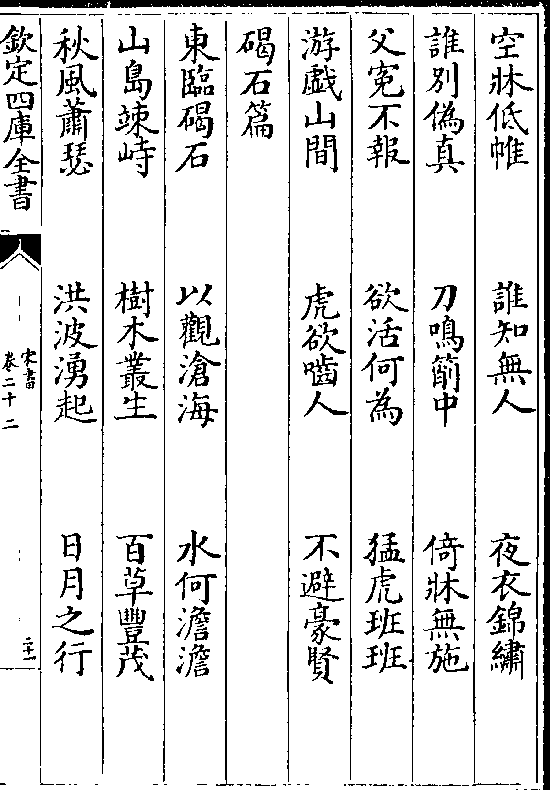 空牀低帷　誰知無人　夜衣錦繡
誰別偽真　刀鳴箾中　倚牀無施
父寃不報　欲活何為　猛虎班班
游戯山間　虎欲嚙人　不避豪賢
碣石篇
東臨碣石　以觀滄海　水何澹澹
山島竦峙　樹木叢生　百草豐茂
秋風蕭瑟　洪波湧起　日月之行
欽定四庫全書
宋書
卷二十二